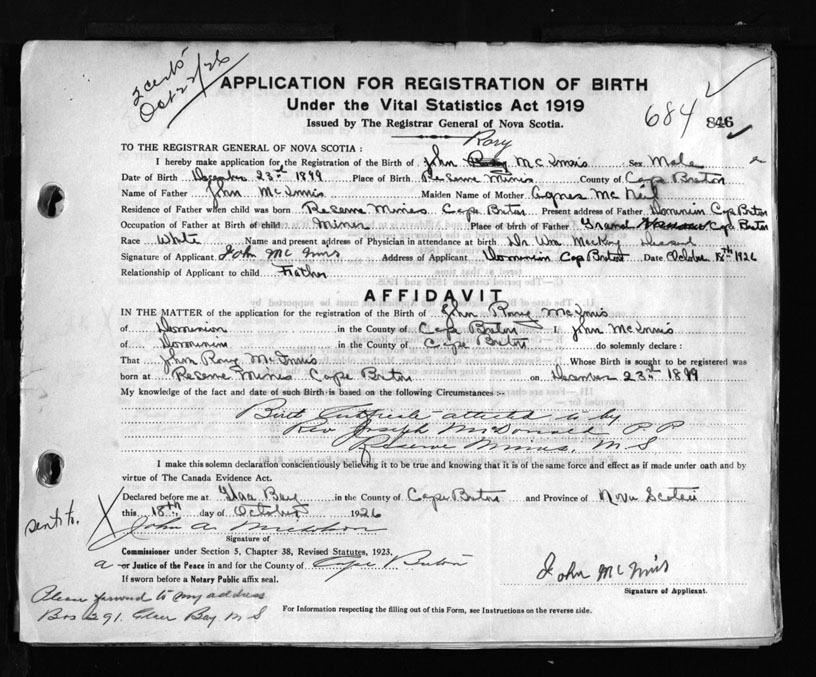 2 certs
Oct 22/26
APPLICATION FOR REGISTRATION OF BIRTH
Under the Vital Statistics Act 1919
Issued by The Registrar General of Nova Scotia.
684
846
TO THE REGISTRAR GENERAL OF NOVA SCOTIA :
Rory
I hereby make application for the Registration of the Birth of John McInnis Sex Male
Date of Birth December 23rd 1899 Place of Birth Reserve Mines County of Cape Breton
Name of Father John McInnis Maiden Name of Mother Agnes McNeil
Residence of Father when child was born Reserve Mines Cape Breton Present address of Father Dominion Cap Breton
Occupation of Father at Birth of child Miner Place of birth of Father Grand Cap Breton
Race White Name and present address of Physician in attendance at birth Dr Wm
Signature of Applicant John McInnis Address of Applicant Dominion Cap Breton Date October 18th 1926
Relationship of Applicant to child Father
AFFIDAVIT
IN THE MATTER of the application for the registration of the Birth of John Rory McInnis
of Dominion in the County of Cape Breton I John McInnis
of Dominion in the County of Cape Breton do solemnly declare :
That John Rory McInnis Whose Birth is sought to be registered was
born at Reserve Mines Cape Breton on December 23rd 1899
My knowledge of the fact and date of such Birth is based on the following Circumstances :-
Birth Certificate attested to by
Rev Joseph McDonald P.P.
Reserve Mines, N S
I make this solemn declaration conscientiously believing it to be true and knowing that it is of the same force and effect as if made under oath and by
virtue of The Canada Evidence Act.
Declared before me at Glace Bay in the County of Cape Breton and Province of Nova Scotia
this 18th day of October 1926
sent to.
John A. Nicholson
Signature of
Commissioner under Section 5, Chapter 38, Revised Statutes, 1923.
a or Justice of the Peace in and for the County of Cape Breton
If sworn before a Notary Public affix seal.
John McInnis
Signature of Applicant.
Please forward to my address
Box 291. Glace Bay. N S
For Information respecting the filling out of this Form, see Instructions on the reverse side.